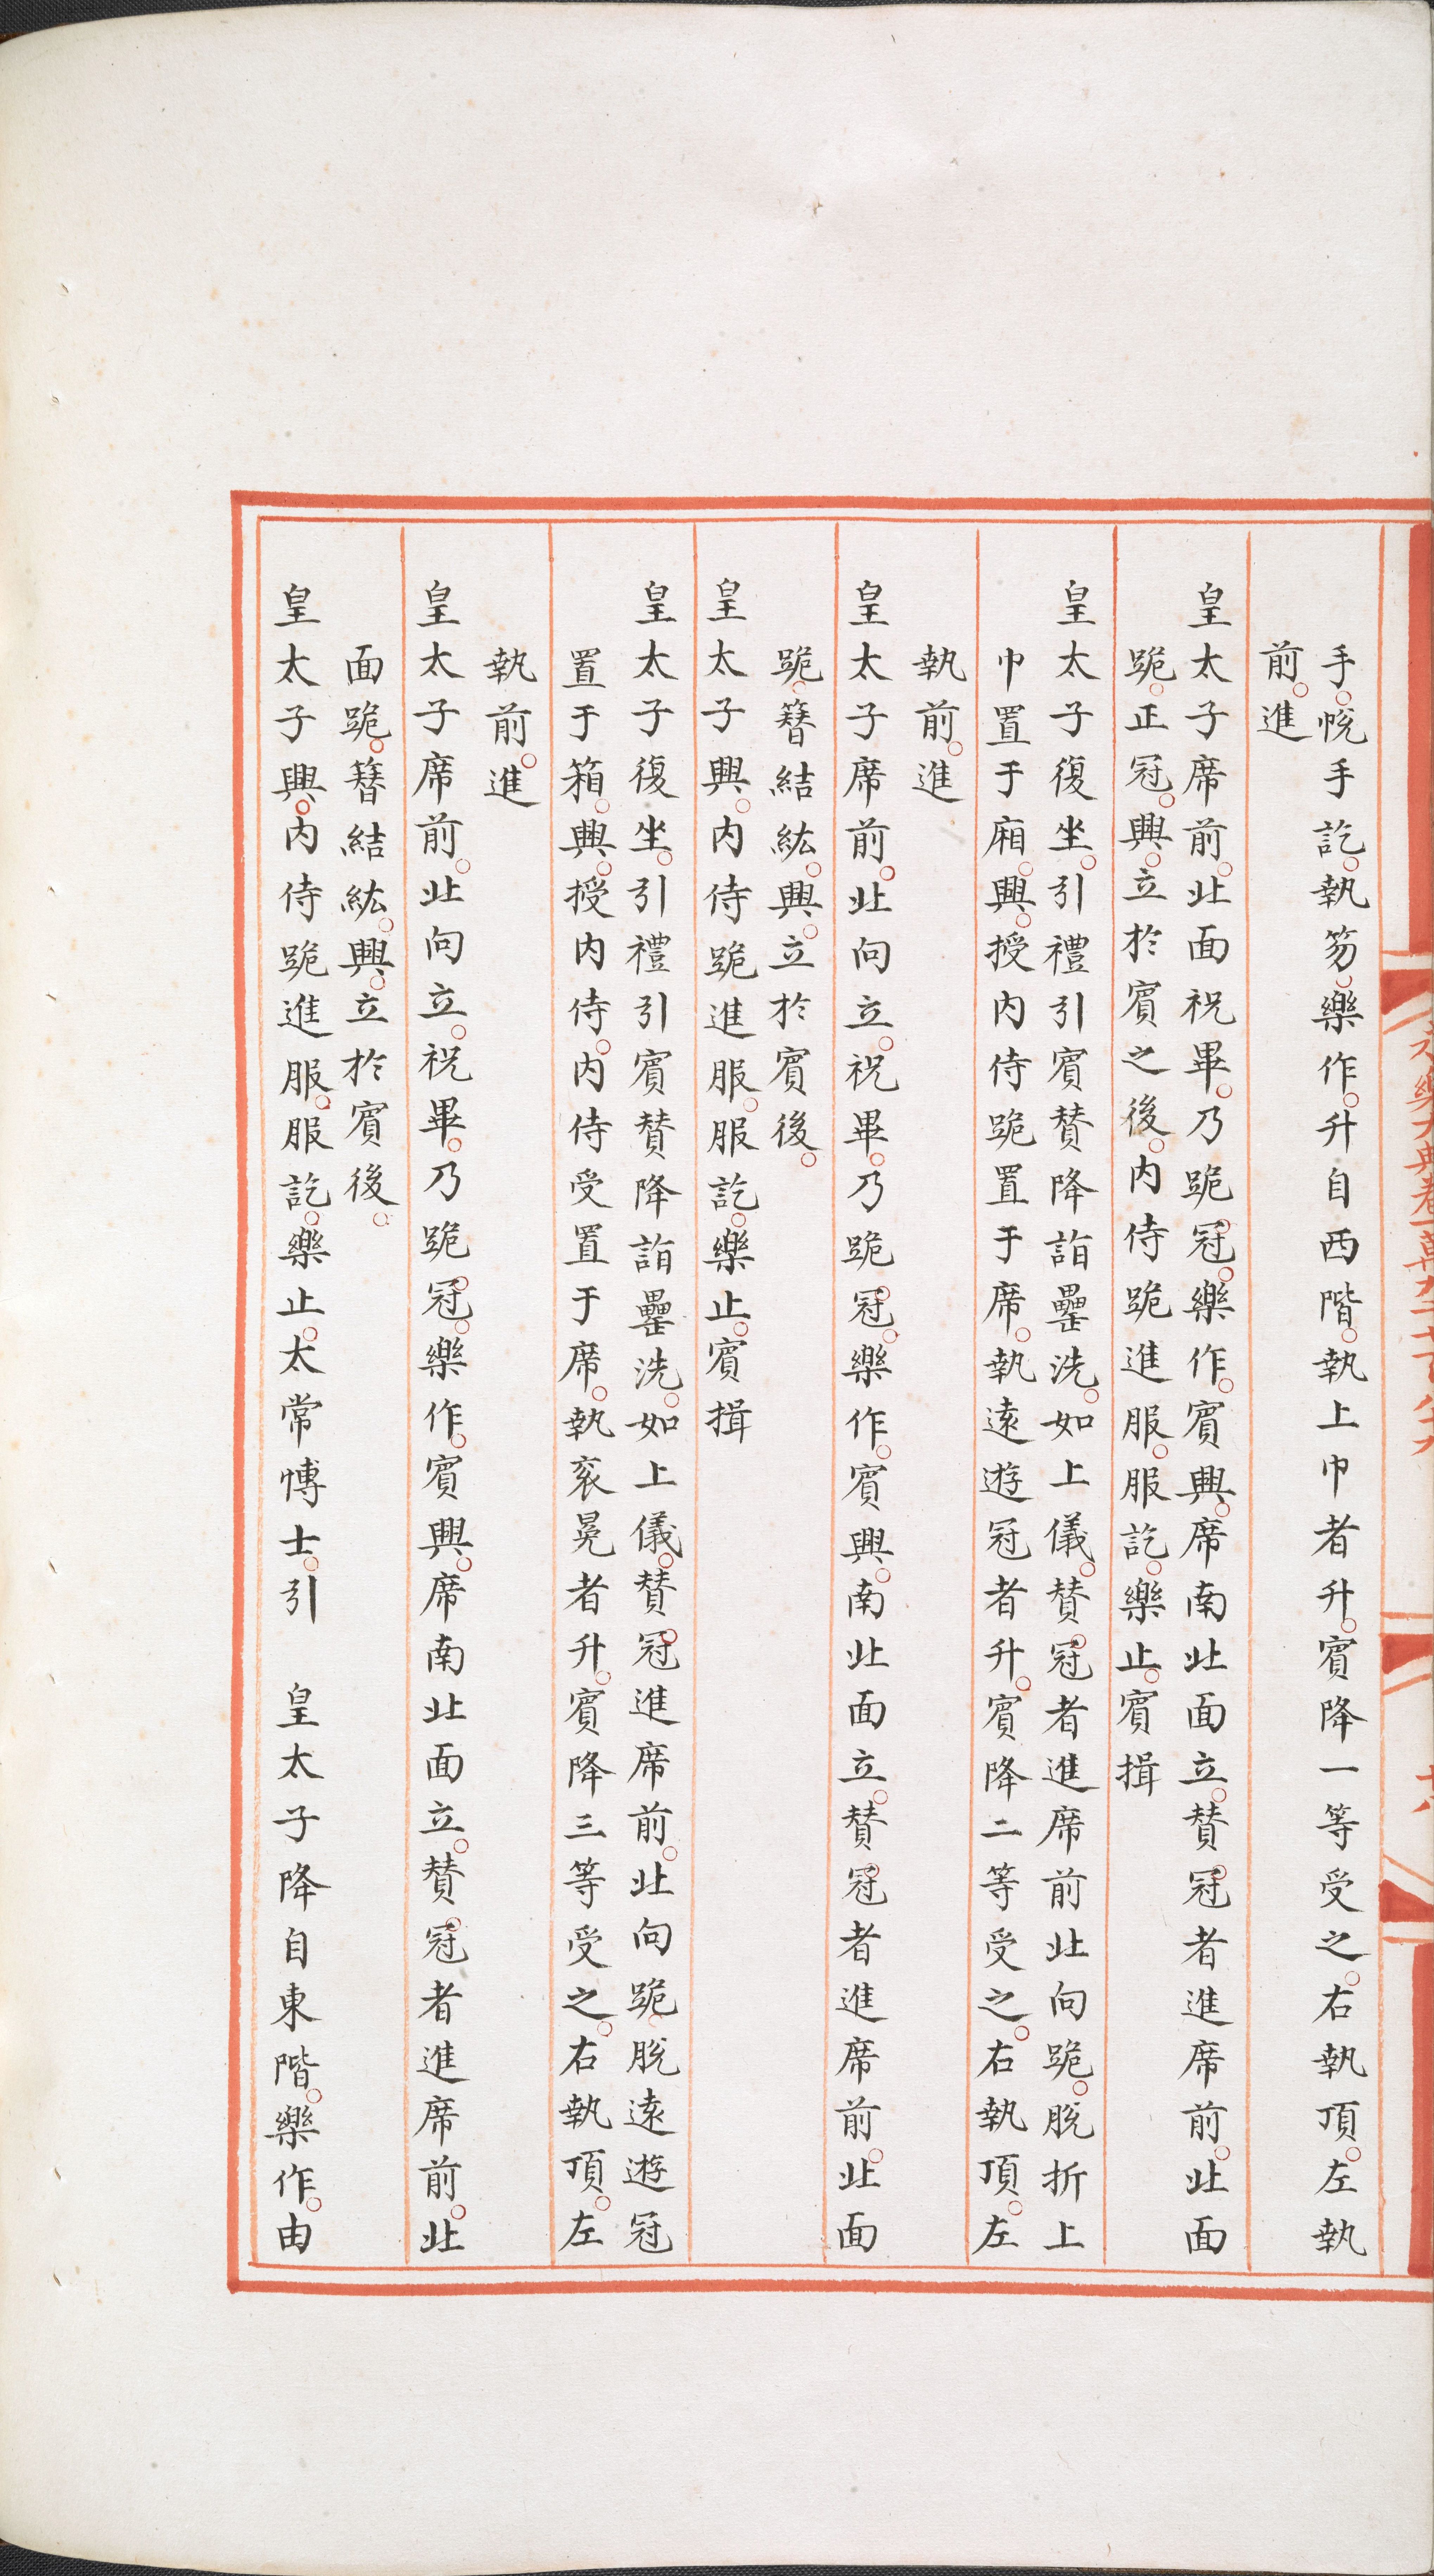 手。帨手訖。執笏。樂作。升自西階。執上巾者升。賓降一等受之。右執頂。左執
前。進
皇太子席前。北面祝畢。乃跪冠。樂作。賓興。席南北面立。賛冠者進席前。北面
跪。正冠。興。立於賓之後。内侍跪進服。服訖。樂止。賓揖
皇太子復坐。引禮引賓賛降詣罍洗。如上儀。賛冠者進席前北向跪。脫折上
巾置于廂。興。授内侍跪置于席。執逺遊冠者升。賓降二等受之。右執頂。左
執前。進
皇太子席前。北向立。祝畢。乃跪冠。樂作。賓興。南北面立。賛冠者進席前。北面
跪。簪結紘。興。立於賓後。
皇太子興。内侍跪進服。服訖。樂止。賓揖
皇太子復坐。引禮引賓賛降詣罍洗。如上儀。賛冠進席前。北向跪。脫逺遊冠
置于箱。興。授内侍。内侍受置于席。執衮冕者升。賓降三等受之。右執頂。左
執前。進
皇太子席前。北向立。祝畢。乃跪冠。樂作。賓興。席南北面立。賛冠者進席前。北
面跪。簪結紘。興。立於賓後。
皇太子興。内侍跪進服。服訖。樂止。太常愽士。引　皇太子降自東階。樂作。由